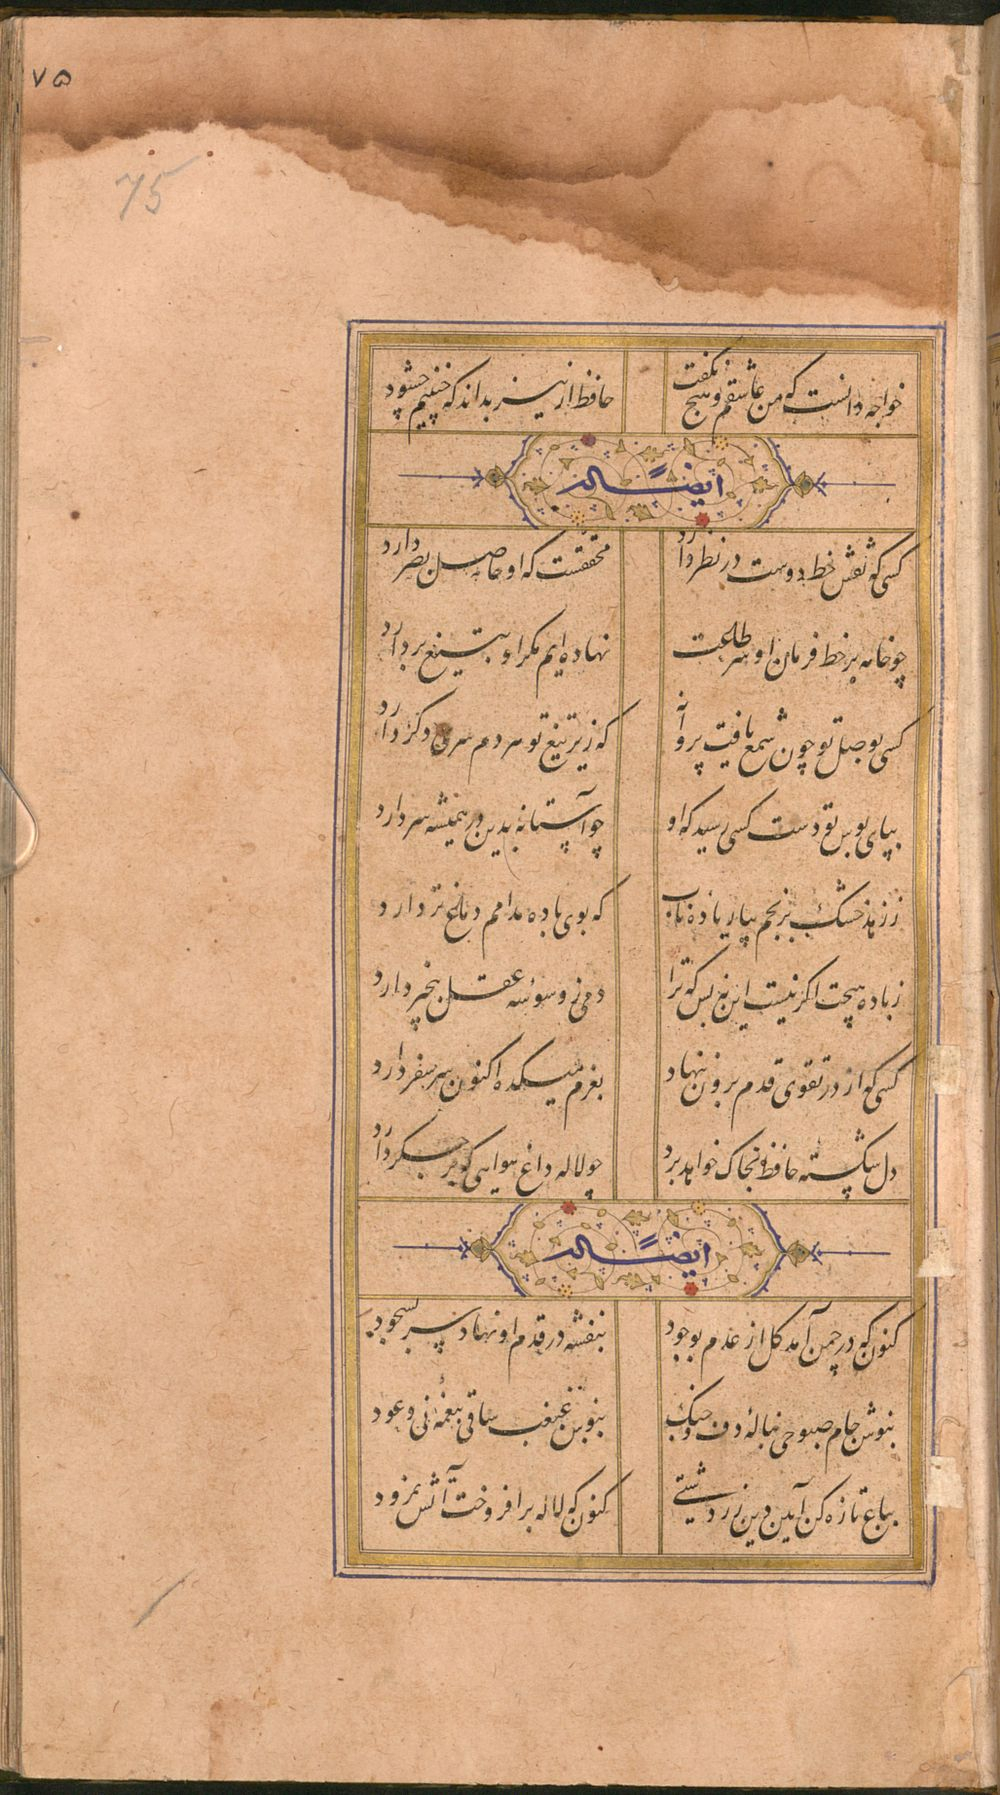 ۷۵
75
خواجه دانست که من عاشقم و هیچ نگفت حافظ ار نیز بداند که چنینم چشود
ایضاً له
کسی که نقش خط دوست در نظر دارد محققست که او حاصل بصر دارد
چو خامه بر خط فرمان او سر طاعت نهاده ایم مکر او بتیغ بردارد
کسی بوصل تو چون شمع یافت پروانه که زیر تیغ تو هر دم سری دکر دارد
بپای بوس تو دست کسی رسید که او چو آستانه بدین در همیشه سر دارد
ز زهد خشک برنجم بیار باده ناب که بوی باده مدامم دماغ تر دارد
ز باده هیچت اکر نیست این نه بس که ترا دمی ز وسوسه عقل بیخبر دارد
کسی که از در تقوی قدم برون ننهاد بعزم میکده اکنون سر سفر دارد
دل شکسته حافظ بخاک خواهد برد چو لاله داغ هوایی که بر جکر دارد
ایضاً له
کنون که در چمن آمد کل از عدم بوجود بنفشه در قدم او نهاد سر بسجود
بنوش جام صبوحی بناله دف و چنک ببوس غبغب ساقی بنغمه نی و عود
بباغ تازه کن آیین دین زردشتی کنون که لاله برافروخت آتش نمرود